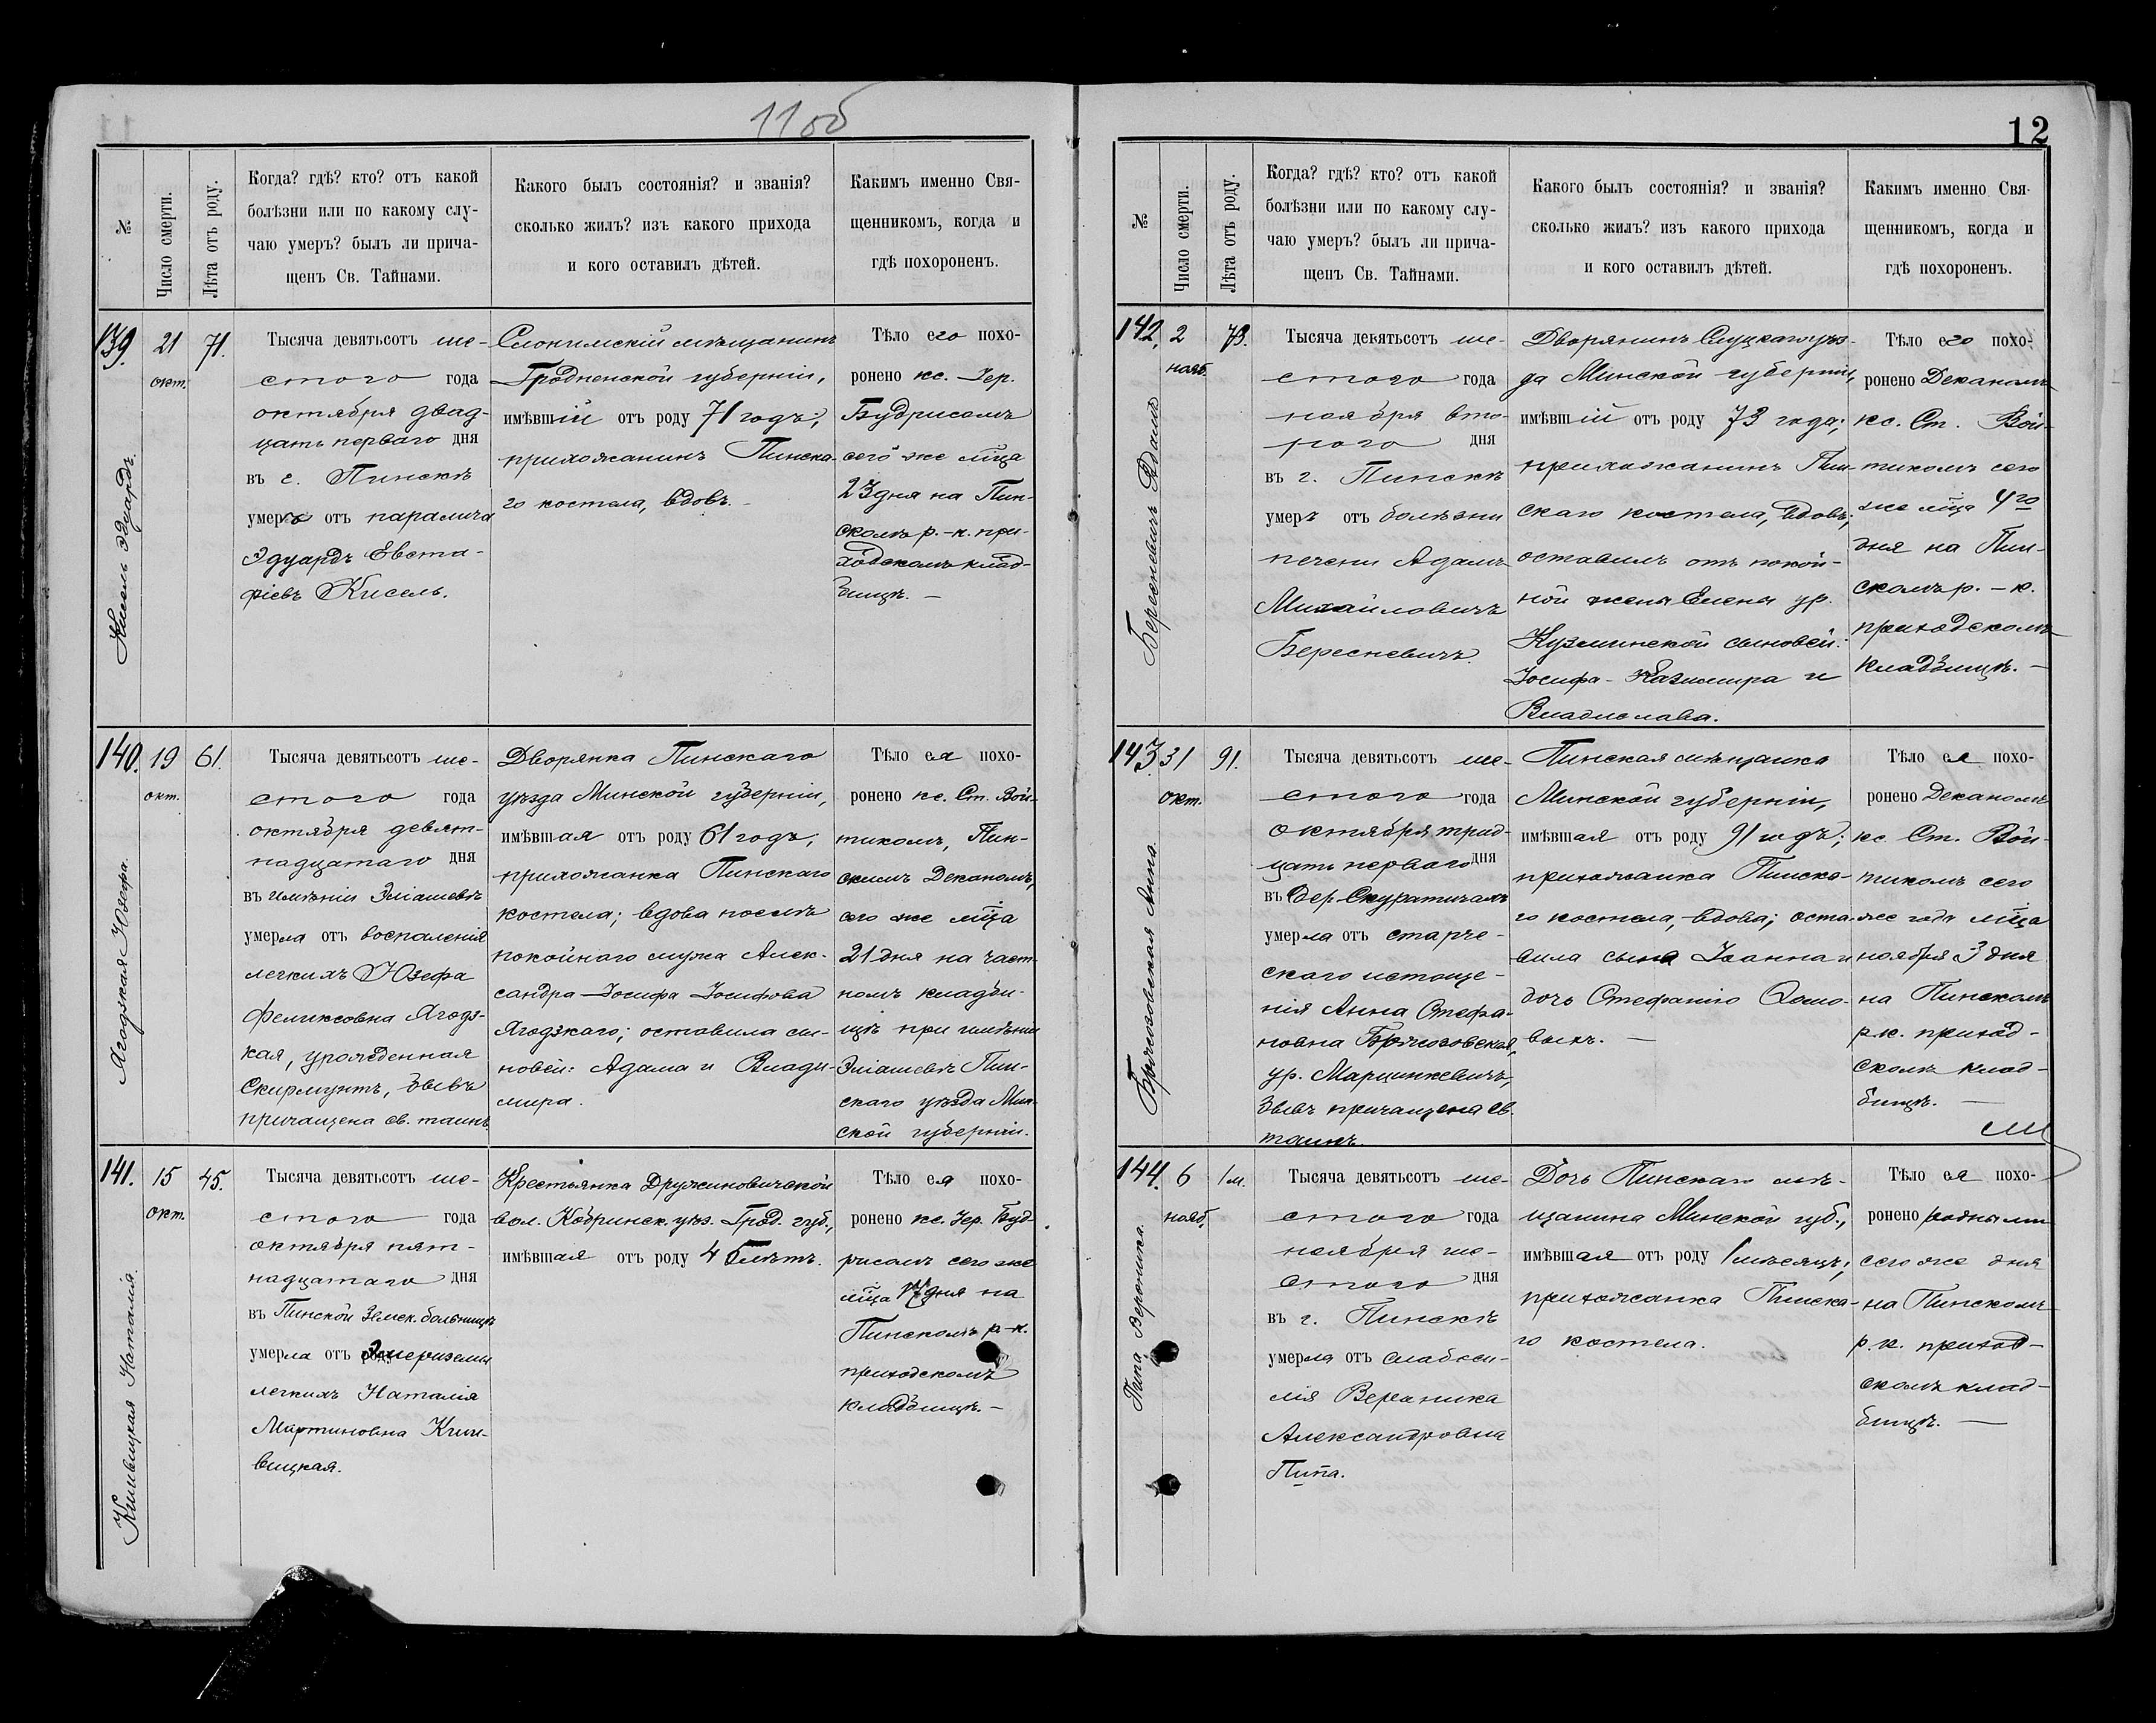 11об
№
Число смерти.
Лѣта отъ роду.
Когда? гдѣ? кто? отъ какой
болѣзни или по какому слу-
чаю умеръ? былъ ли прича-
щенъ Св. Тайнами.
Какого былъ состоянія? и званія?
сколько жилъ? изъ какого прихода
и кого оставилъ дѣтей.
Какимъ именно Свя-
щенникомъ, когда и
гдѣ похороненъ.
139.
Кисель Эдуардъ.
21
окт.
71.
Тысяча девятьсотъ ше-
стого года
октября двад-
цать перваго дня
въ г. Пинскѣ
умеръ отъ паралича
Эдуардъ Евста-
фіевъ Кисель.
Слонимскій мѣщанинъ
Гродненской губерніи,
имѣвшій отъ роду 71 годъ;
прихожанинъ Пинска-
го костела, вдовъ. -
Тѣло его похо-
ронено кс. Іер.
Будрисомъ
сего же мѣца
23 дня на Пин-
скомъ р.-к. при-
ходскомъ клад-
бищѣ. —
140.
Ягодзкая Юзефа.
19
окт.
61.
Тысяча девятьсотъ ше-
стого года
октября девят-
надцатаго дня
въ имѣніи Эліашевѣ
умерла отъ воспаленія
легкихъ Юзефа
Феликсовна Ягодз-
кая, урожденная
Скирмунтъ, бывъ
причащена св. таинъ.
Дворянка Пинскаго
уѣзда Минской губерніи,
имѣвшая отъ роду 61 годъ;
прихожанка Пинскаго
костела; вдова послѣ
покойнаго мужа Алек-
сандра-Іосифа Іосифова
Ягодзкаго; оставила сы-
новей: Адама и Влади-
мира.
Тѣло ея похо-
ронено кс. Ст. Вой-
тикомъ, Пин-
скимъ Деканомъ,
сего же мѣца
21 дня на част-
номъ кладби-
щѣ при имѣніи
Эліашевѣ Пин-
скаго уѣзда Мин-
ской губерніи.
141.
Кшивицкая Наталія.
15
окт.
45.
Тысяча девятьсотъ ше-
стого года
октября пят-
надцатаго дня
въ Пинской Земск. больницѣ
умерла отъ эмфиземы
легкихъ Наталія
Мартиновна Кши-
вицкая.
Крестьянка Дружиловичской
вол. Кобринск. уѣз. Грод. губ.,
имѣвшая отъ роду 45 лѣтъ.
Тѣло ея похо-
ронено кс. Іер. Буд-
рисомъ сего же
мѣца 17 дня на
Пинскомъ р-к.
приходскомъ
кладбищѣ. -
12
№
Число смерти.
Лѣта отъ роду.
Когда? гдѣ? кто? отъ какой
болѣзни или по какому слу-
чаю умеръ? былъ ли прича-
щенъ Св. Тайнами.
Какого былъ состоянія? и званія?
сколько жилъ? изъ какого прихода
и кого оставилъ дѣтей.
Какимъ именно Свя-
щенникомъ, когда и
гдѣ похороненъ.
142.
Бересневичъ Адамъ
2
нояб.
73.
Тысяча девятьсотъ ше-
стого года
ноября вто-
рого дня
въ г. Пинскѣ
умеръ отъ болѣзни
печени Адамъ
Михайловичъ
Бересневичъ.
Дворянинъ Слуцкаго уѣз-
да Минской губерніи,
имѣвшій отъ роду 73 года;
прихожанинъ Пин-
скаго костела, вдовъ;
оставилъ отъ покой-
ной жены Елены ур.
Кузминской сыновей:
Іосифа-Казимира и
Владислава.
Тѣло его похо-
ронено Деканомъ
кс. Ст. Вой-
тикомъ сего
же мѣца 4го
дня на Пин-
скомъ р.-к.
приходскомъ
кладбищѣ. —
143.
Бржозовская Анна.
31
окт.
91.
Тысяча девятьсотъ ше-
стого года
октября трид-
цать перваго дня
въ дер. Скуратичахъ
умерла отъ старче-
скаго истоще-
нія Анна Стефа-
новна Бржозовская,
ур. Марцинкевичъ,
бывъ причащена св.
таинъ.
Пинская мѣщанка
Минской губерніи,
имѣвшая отъ роду 91 годъ;
прихожанка Пинска-
го костела, вдова; оста-
вила сына Іоанна и
дочь Стефанію
выхъ. —
Тѣло ея похо-
ронено Деканомъ
кс. Ст. Вой-
тикомъ сего
же года мѣца
ноября 3 дня
на Пинскомъ
р.к. приход-
скомъ клад-
бищѣ. —
144.
Пипа Вероника.
6
нояб.
1 м.
Тысяча девятьсотъ ше-
стого года
ноября ше-
стого дня
въ г. Пинскѣ
умерла отъ слабоси-
лія Вероника
Александровна
Пипа.
Дочь Пинскаго мѣ-
щанина Минской губ.,
имѣвшая отъ роду 1 мѣсяцъ;
прихожанка Пинска-
го костела.
Тѣло ея похо-
ронено родными
сего же дня
на Пинскомъ
р.к. приход-
скомъ клад-
бищѣ. —